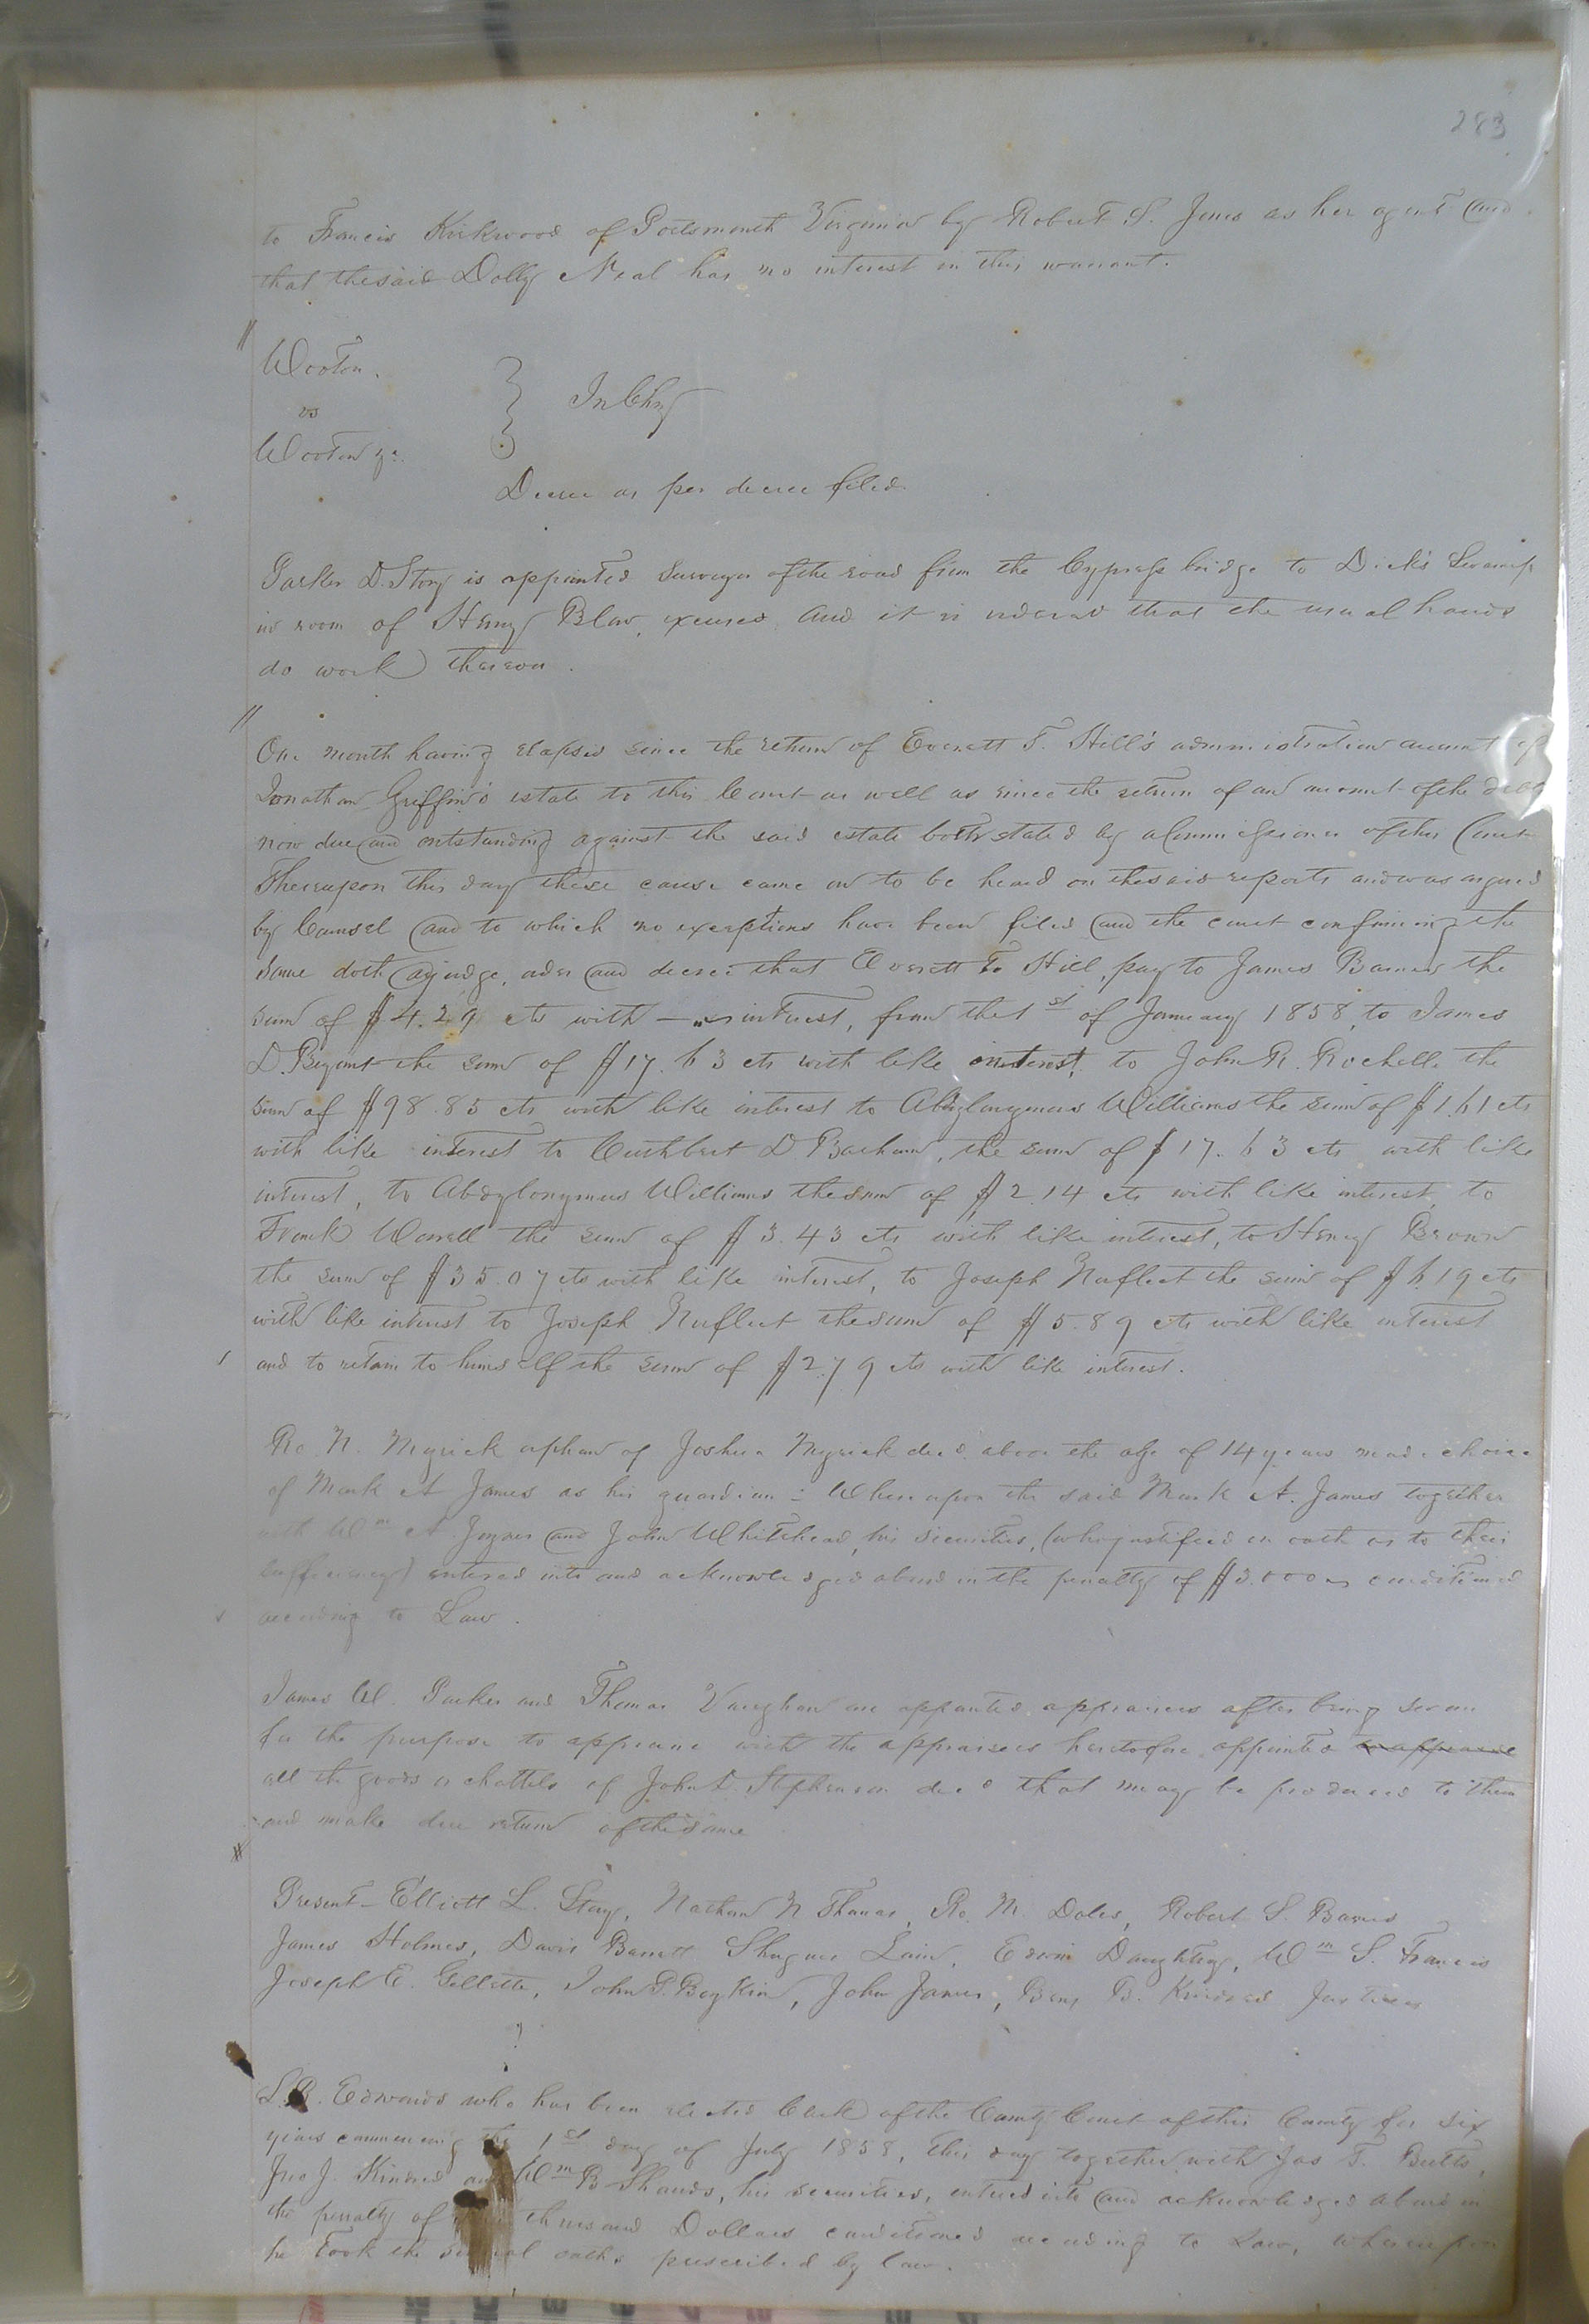 283
to Francis Kirkwood of Portsmouth Virginia by Robert S. Jones as her agent and
that the said Dolly Neal has no interest in this warrant.
Wooton.
vs
Wooten
} In Chy
Decree as per decree filed.
Parker D. Story is appointed Surveyor of the road from the Cypress bridge to Dick's Swamp
in room of Henry Blow, excused and it is ordered that the usual hands
do work thereon.
One month having elapsed since the return of Everett T. Hill's administration account of
Jonathan Griffin's estate to this Court as well as since the return of an account of the debts
now due and outstanding against the said estate both stated by a Commissioner of this Court
Thereupon this day these cause came on to be heard on the said reports and was argued
by Counsel and to which no exceptions have been filed and the court confirming the
same doth adjudge, order and decree that Everett T. Hill, pay to James Barnes the
sum of $4.29 cts with — interest, from the 1st of January 1858, to James
D. Bryant the sum of $17.63 cts with like interest, to John R. Rochelle the
sum of $98.85 cts with like interest to Abdylonymus Williams the sum of $1.61 cts
with like interest to Cuthbert D. Barham, the sum of $17.63 cts with like
interest, to Abdylonymus Williams the sum of $2.14 cts with like interest, to
Frank Worrell the sum of $3.43 cts with like interest, to Henry Brown
the sum of $35.07 cts with like interest, to Joseph Norfleet the sum of $6.19 cts
with like interest to Joseph Norfleet the sum of $5.89 cts with like interest
and to retain to himself the sum of $2.79 cts with like interest.
Ro. N. Myrick orphan of Joshua Myrick decd. above the age of 14 years made choice
of Mark A James as his guardian: Whereupon the said Mark A. James together
with Wm A. Joyner and John Whitehead, his securities, (who justified on oath as to their
sufficiency) entered into and acknowledged a bond in the penalty of $3.000 conditioned
according to Law.
James W. Parker and Thomas Vaughan are appointed appraisers after being sworn
for the purpose to appraise with the appraisers heretofore appointed to appraise
all the goods & chattels of John Stephenson decd that may be produced to them
and make due return of the same
Present - Elliott L. Story, Nathan N Thomas, Ro. M. Doles, Robert S. Barnes
James Holmes, Davis Barrett Lain, Edwin Daughtry, Wm S. Francis
Joseph E. Gillette, John P. Boykin, John James, Benj. B. Kindred Justices
L.R. Edwards who has been elected Clerk of the County Court of this County for six
years commencing the 1st day of July 1858, this day together with Jas T. Butts,
Jno J. Kindred and Wm B Shands, his securities, entered into and acknowledged a bond in
the penalty of thousand Dollars conditioned according to Law, whereupon
he took the several oaths prescribed by law.